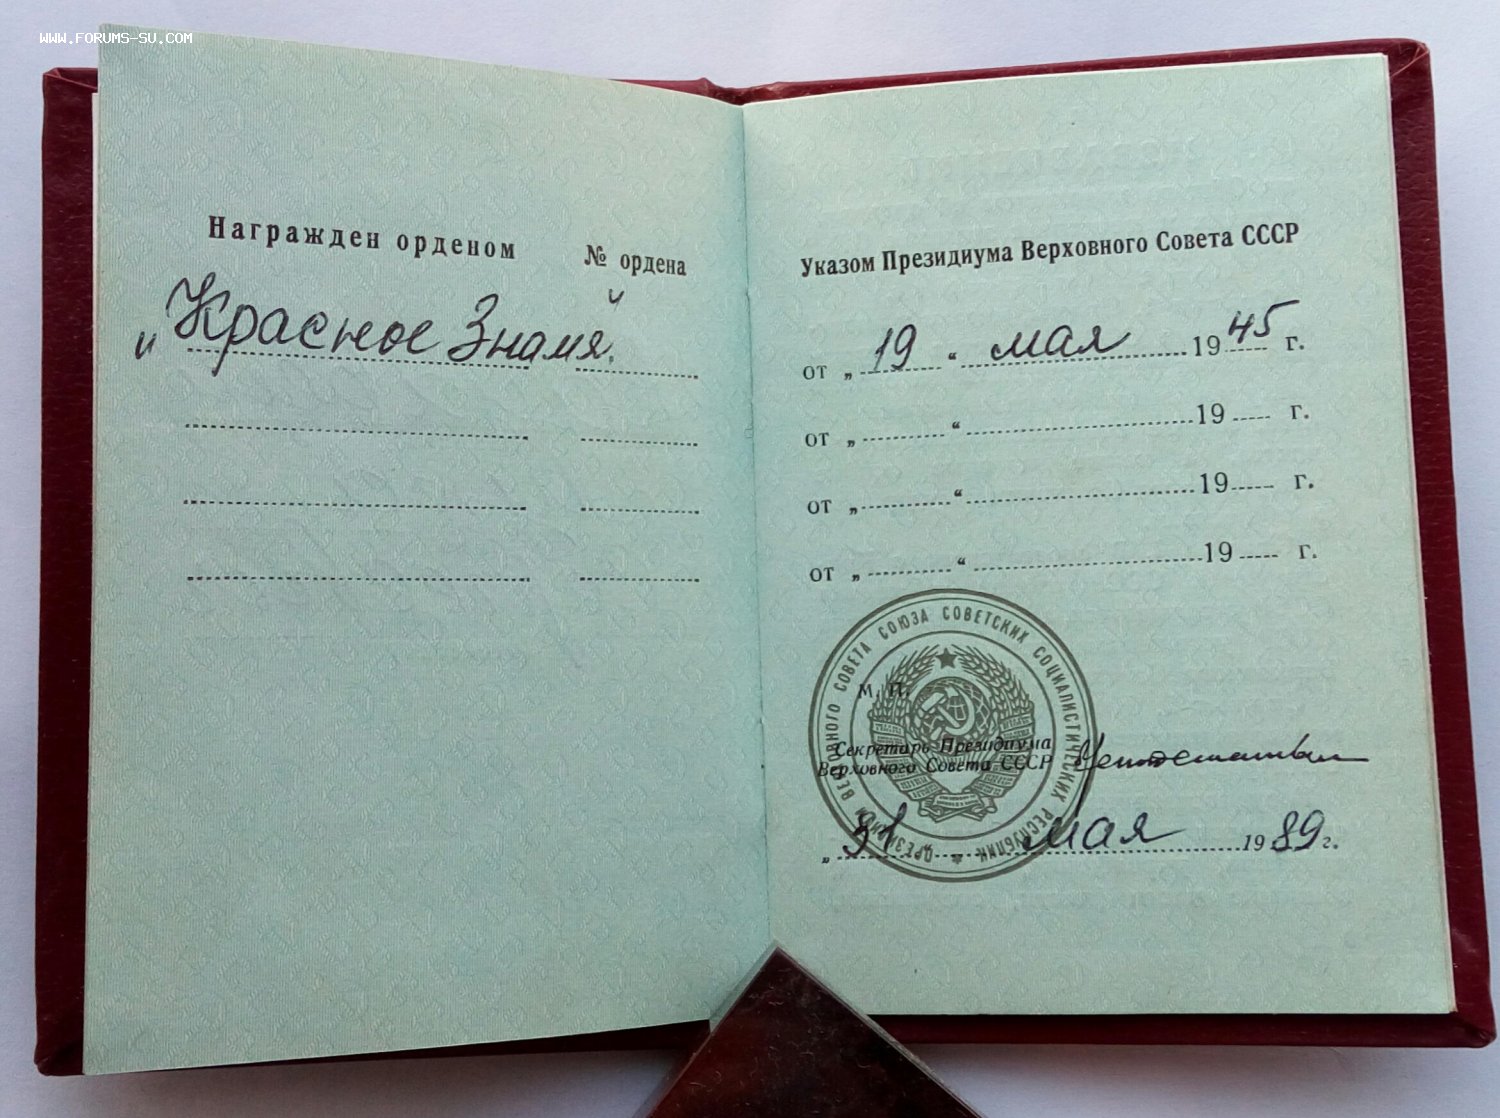 WWW.FORUMS-SU.COM
Награжден орденом № ордена
„Красное Знамя“
Указом Президиума Верховного Совета СССР
от „ 19 “ мая 1945 г.
от „ “ 19 г.
от „ “ 19 г.
от „ “ 19 г.
ПРЕЗИДИУМ ВЕРХОВНОГО СОВЕТА СОЮЗА СОВЕТСКИХ СОЦИАЛИСТИЧЕСКИХ РЕСПУБЛИК
М. П.
Секретарь Президиума
Верховного Совета СССР
„ 31 мая 1989 г.